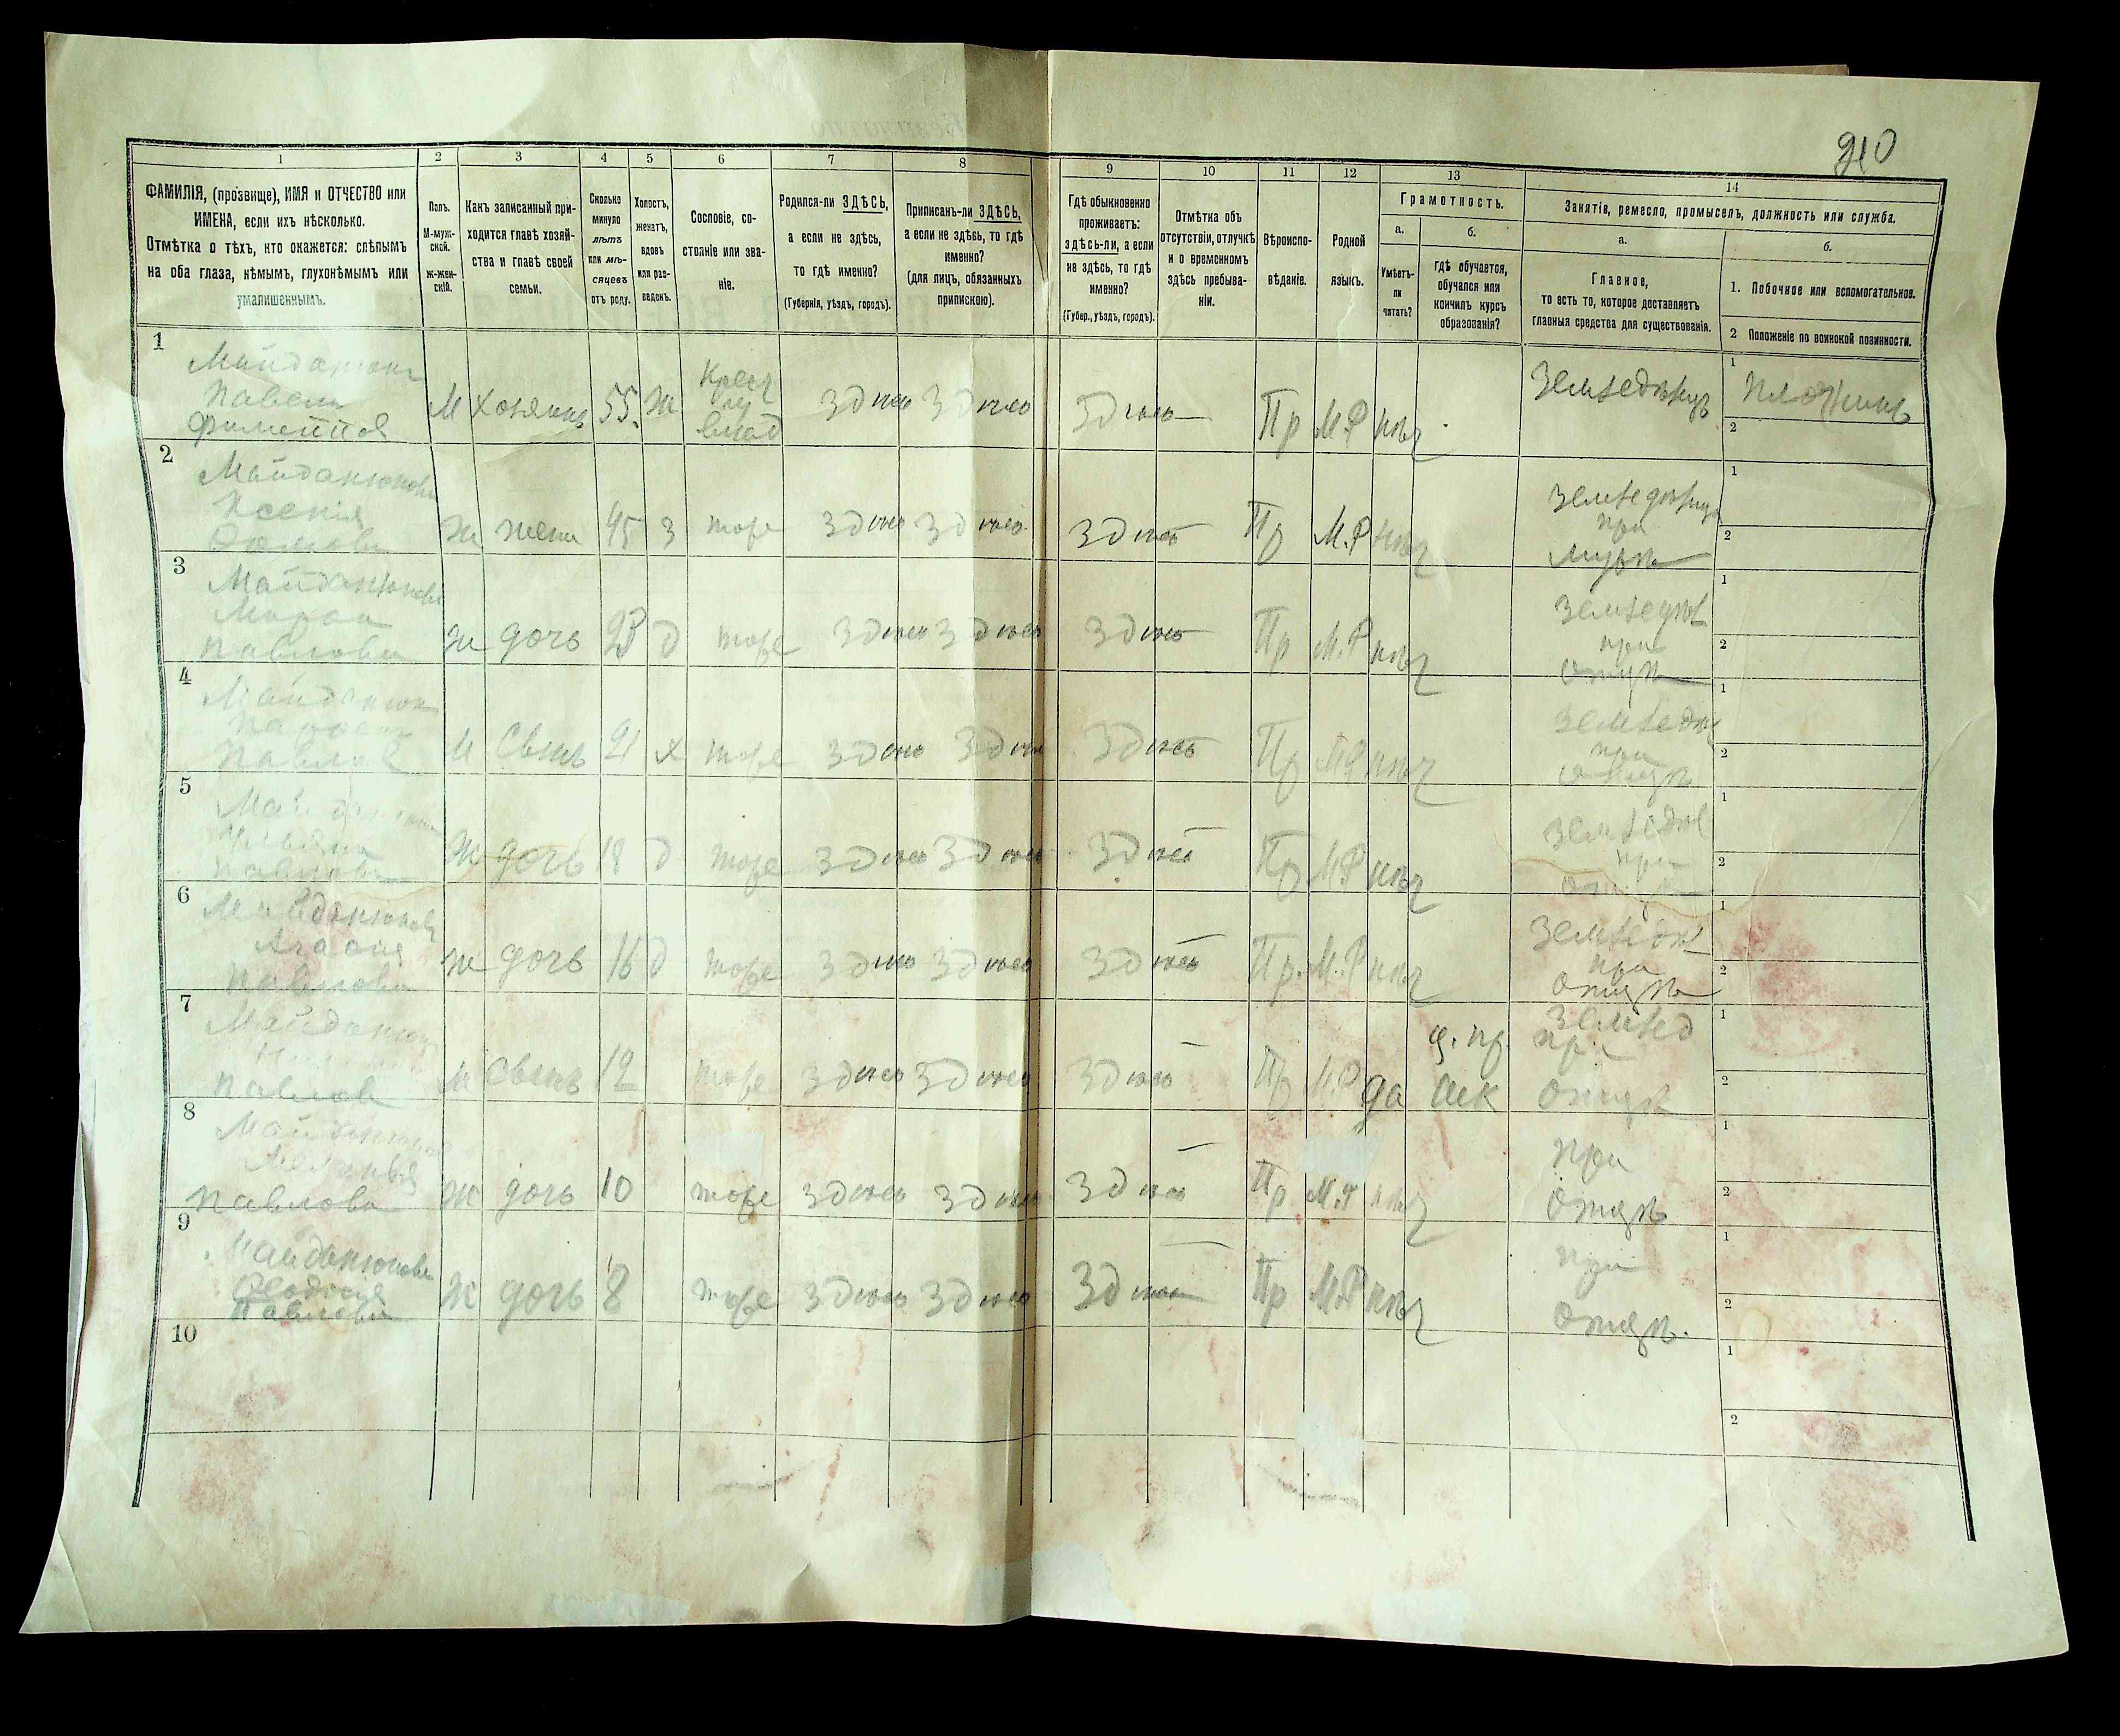 910
1 2 3 4 5 6 7 8 9 10 11 12 13 14
ФАМИЛІЯ, (прозвище), ИМЯ и ОТЧЕСТВО или
ИМЕНА, если ихъ нѣсколько.
Отмѣтка о тѣхъ, кто окажется: слѣпымъ
на оба глаза, нѣмымъ, глухонѣмымъ или
умалишеннымъ.
Полъ.
М-муж-
ской.
Ж-жен-
скій.
Какъ записанный при-
ходится главѣ хозяй-
ства и главѣ своей
семьи.
Сколько
минуло
лѣтъ
или мѣ-
сяцевъ
отъ роду.
Холостъ,
женатъ,
вдовъ
или раз-
веденъ.
Сословіе, со-
стояніе или зва-
ніе.
Родился-ли ЗДѢСЬ,
а если не здѣсь,
то гдѣ именно?
(Губернія, уѣздъ, городъ).
Приписанъ-ли ЗДѢСЬ,
а если не здѣсь, то гдѣ
именно?
(для лицъ, обязанныхъ
припискою).
Гдѣ обыкновенно
проживаетъ:
здѣсь-ли, а если
не здѣсь, то гдѣ
именно?
(Губер., уѣздъ, городъ).
Отмѣтка объ
отсутствіи, отлучкѣ
и о временномъ
здѣсь пребыва-
ніи.
Вѣроиспо-
вѣданіе.
Родной
языкъ.
Грамотность.
а.
Умѣетъ-
ли
читать?
б.
гдѣ обучается,
обучался или
кончилъ курсъ
образованія?
Занятія, ремесло, промыселъ, должность или служба.
а.
Главное,
то есть то, которое доставляетъ
главныя средства для существованія.
б.
1. Побочное или вспомогательное.
2 Положеніе по воинской повинности.
1
Майданюкъ
Павелъ
М Хозяинъ 55. ж
Крест
из
влад
здѣсь здѣсь здѣсь Пр М.Р нѣт
Земледѣлецъ
1 Плотникъ
2
2
Майданюкова
Ксенія
Ж жена 45 з тоже здѣсь здѣсь здѣсь Пр М.Р нѣт
при
мужѣ
1
2
3
Майданюкова
Павлова
ж дочь д тоже здѣсь здѣсь здѣсь Пр М.Р нѣт
Земледѣл
при
отцѣ
1
2
4
Майданюкъ
Павлов
М Сынъ 21 х тоже здѣсь здѣсь здѣсь Пр М.Р нѣт
Земледѣл
при
отцѣ
1
2
5
Павлова
Ж дочь 18 д тоже здѣсь здѣсь здѣсь Пр М.Р нѣт
Земледѣл
при
отцѣ
1
2
6
Майданюкова
Павлова
ж дочь 16 д тоже здѣсь здѣсь здѣсь Пр. М.Р нѣт
Земледѣл
при
отцѣ
1
2
7
Майданюкъ
Павлов
М Сынъ 12 тоже здѣсь здѣсь здѣсь Пр М.Р да
ц. пр.
шк
Землед
при
отцѣ
1
2
8
Павлова
Ж дочь 10 тоже здѣсь здѣсь здѣсь Пр М.Р нѣт
при
отцѣ
1
2
9
Майданюкова
Феодосія
Павлова
Ж дочь 8 тоже здѣсь здѣсь здѣсь Пр М.Р нѣт
при
отцѣ.
1
2
10
1
2